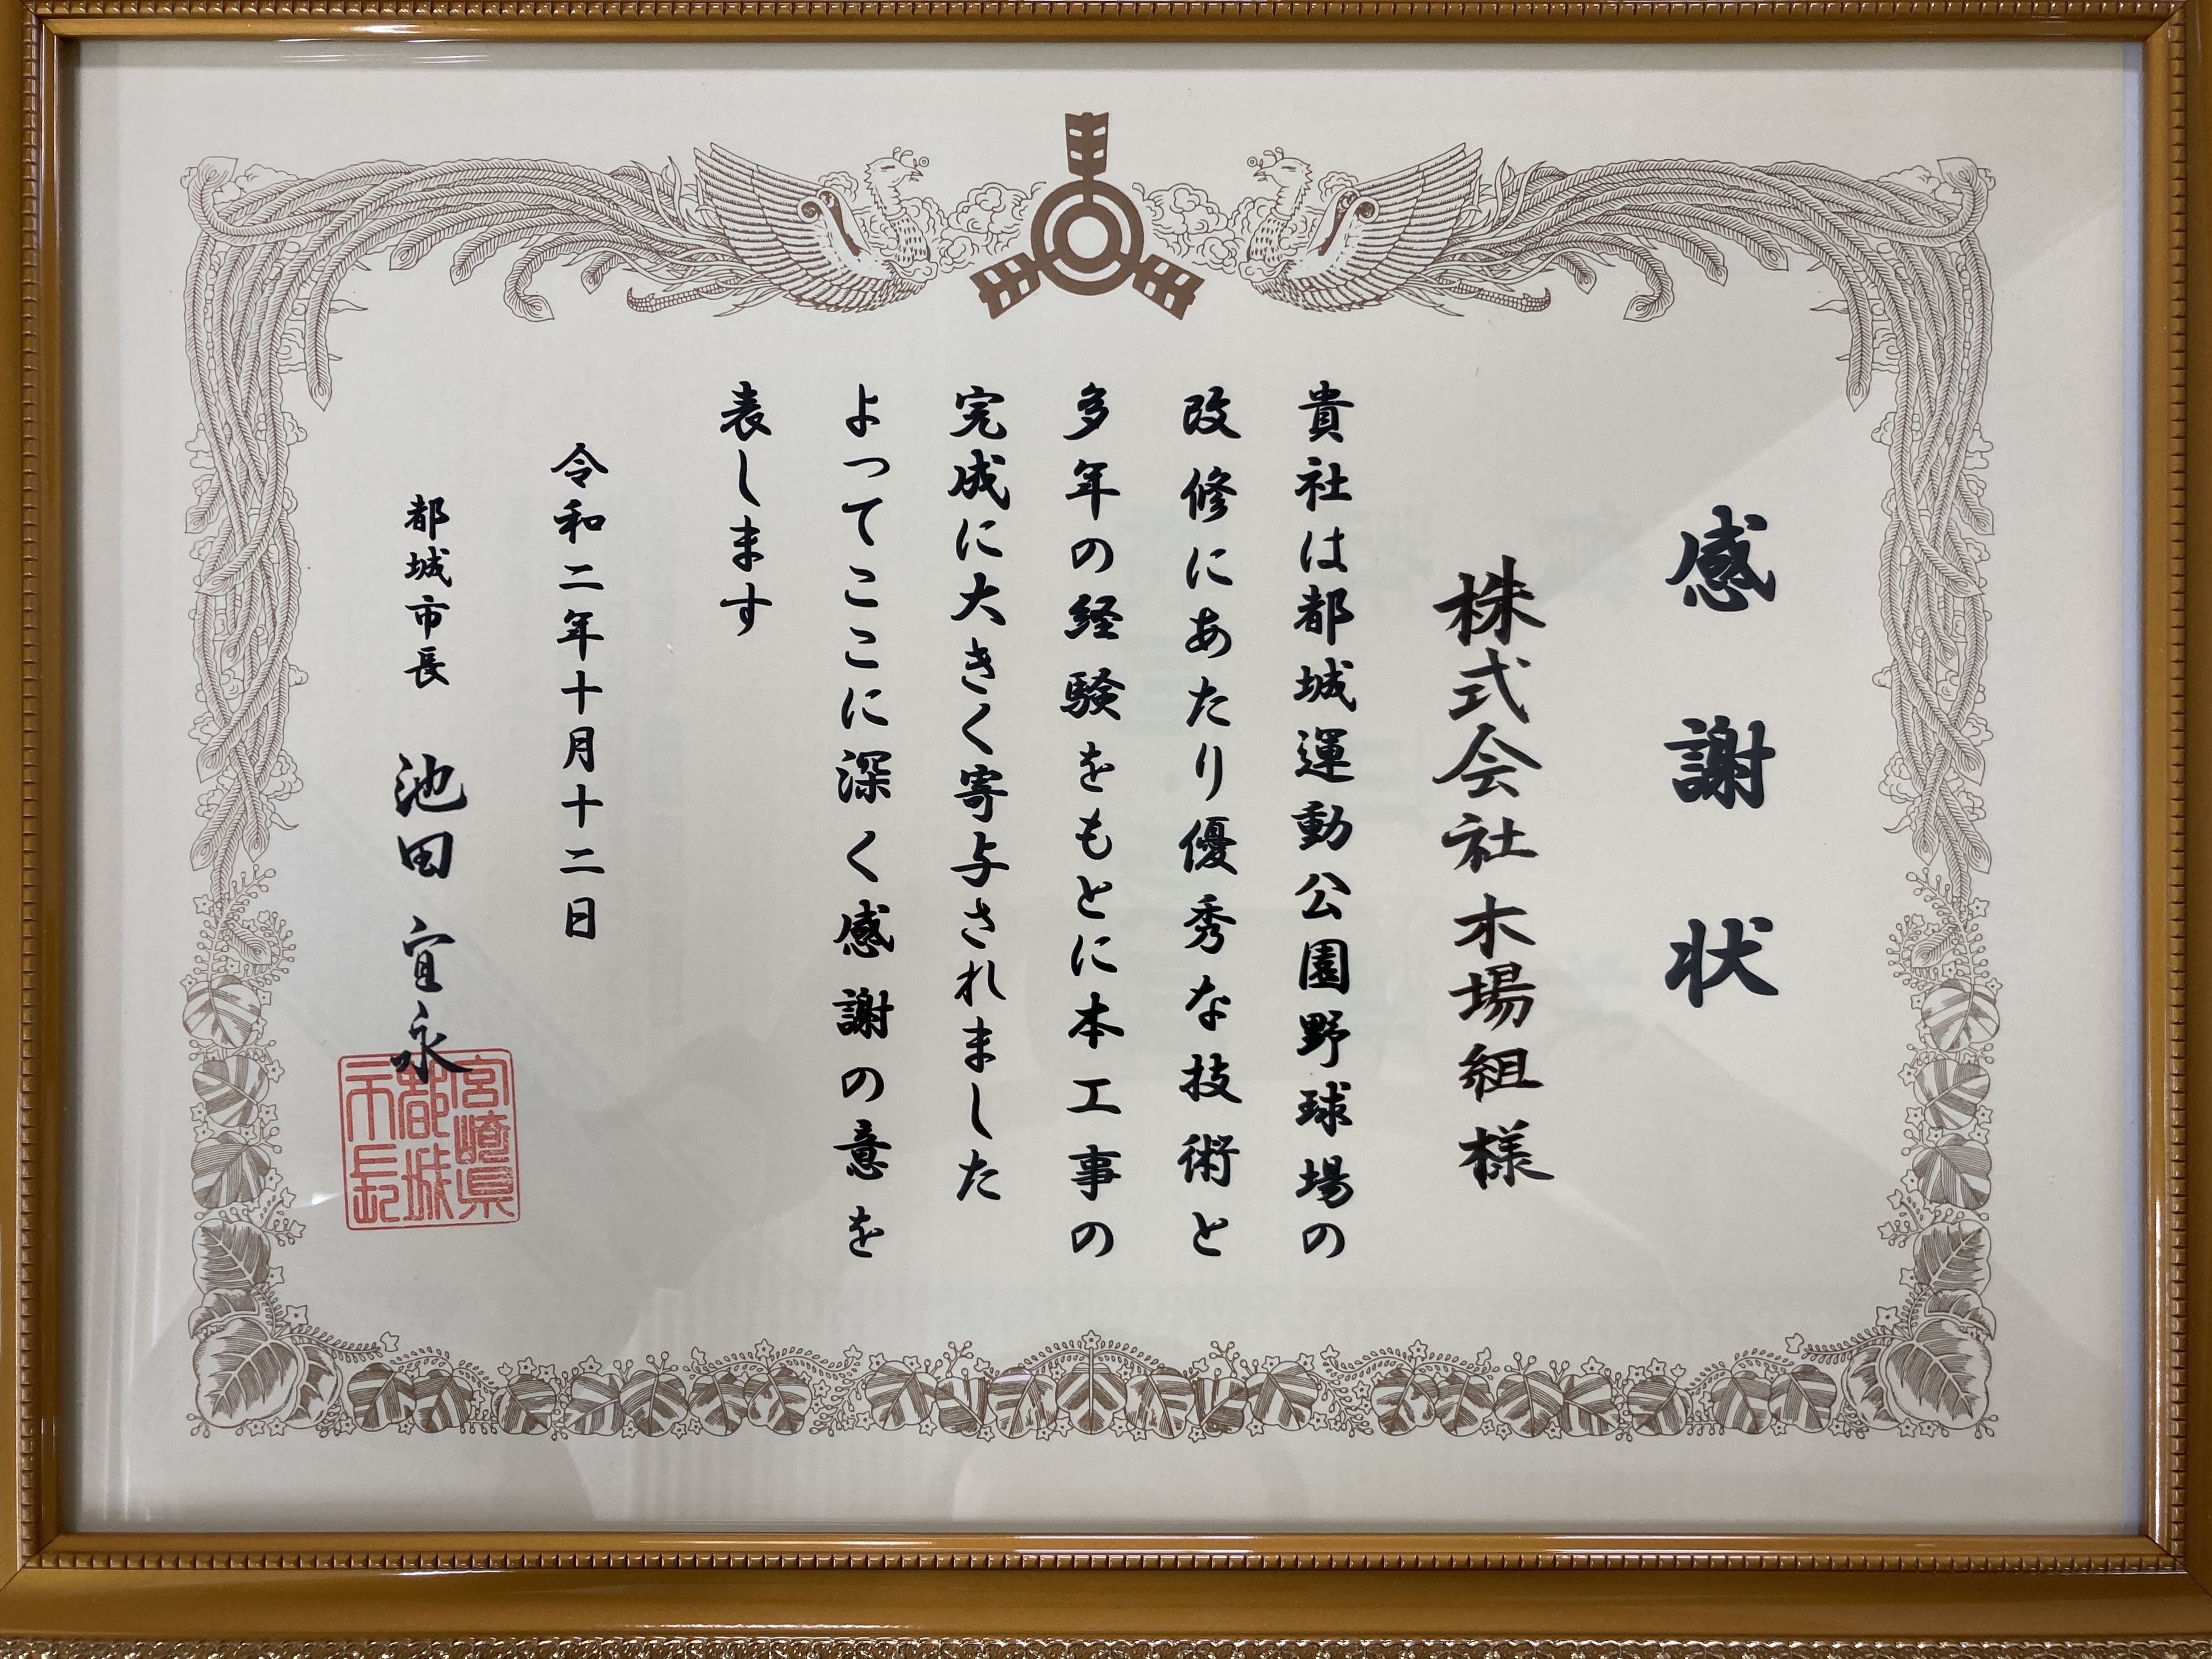 感謝状
株式会社木場組様
貴社は都城運動公園野球場の
改修にあたり優秀な技術と
多年の経験をもとに本工事の
完成に大きく寄与されました
よってここに深く感謝の意を
表します
令和二年十月十二日
都城市長 池田宜永
宮崎県
都城
市長